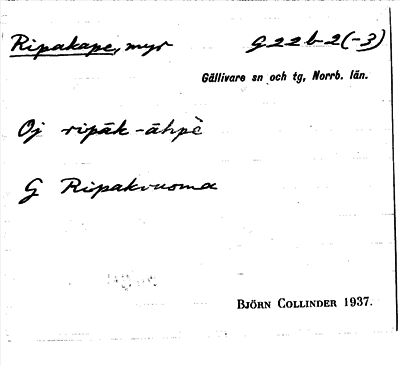 Ripakape, myr G 22 b-2(-3)
Gällivare sn och tg, Norrb. län.
Oj ripāk-āhpè
G Ripakvuoma
BJÖRN COLLINDER 1937.